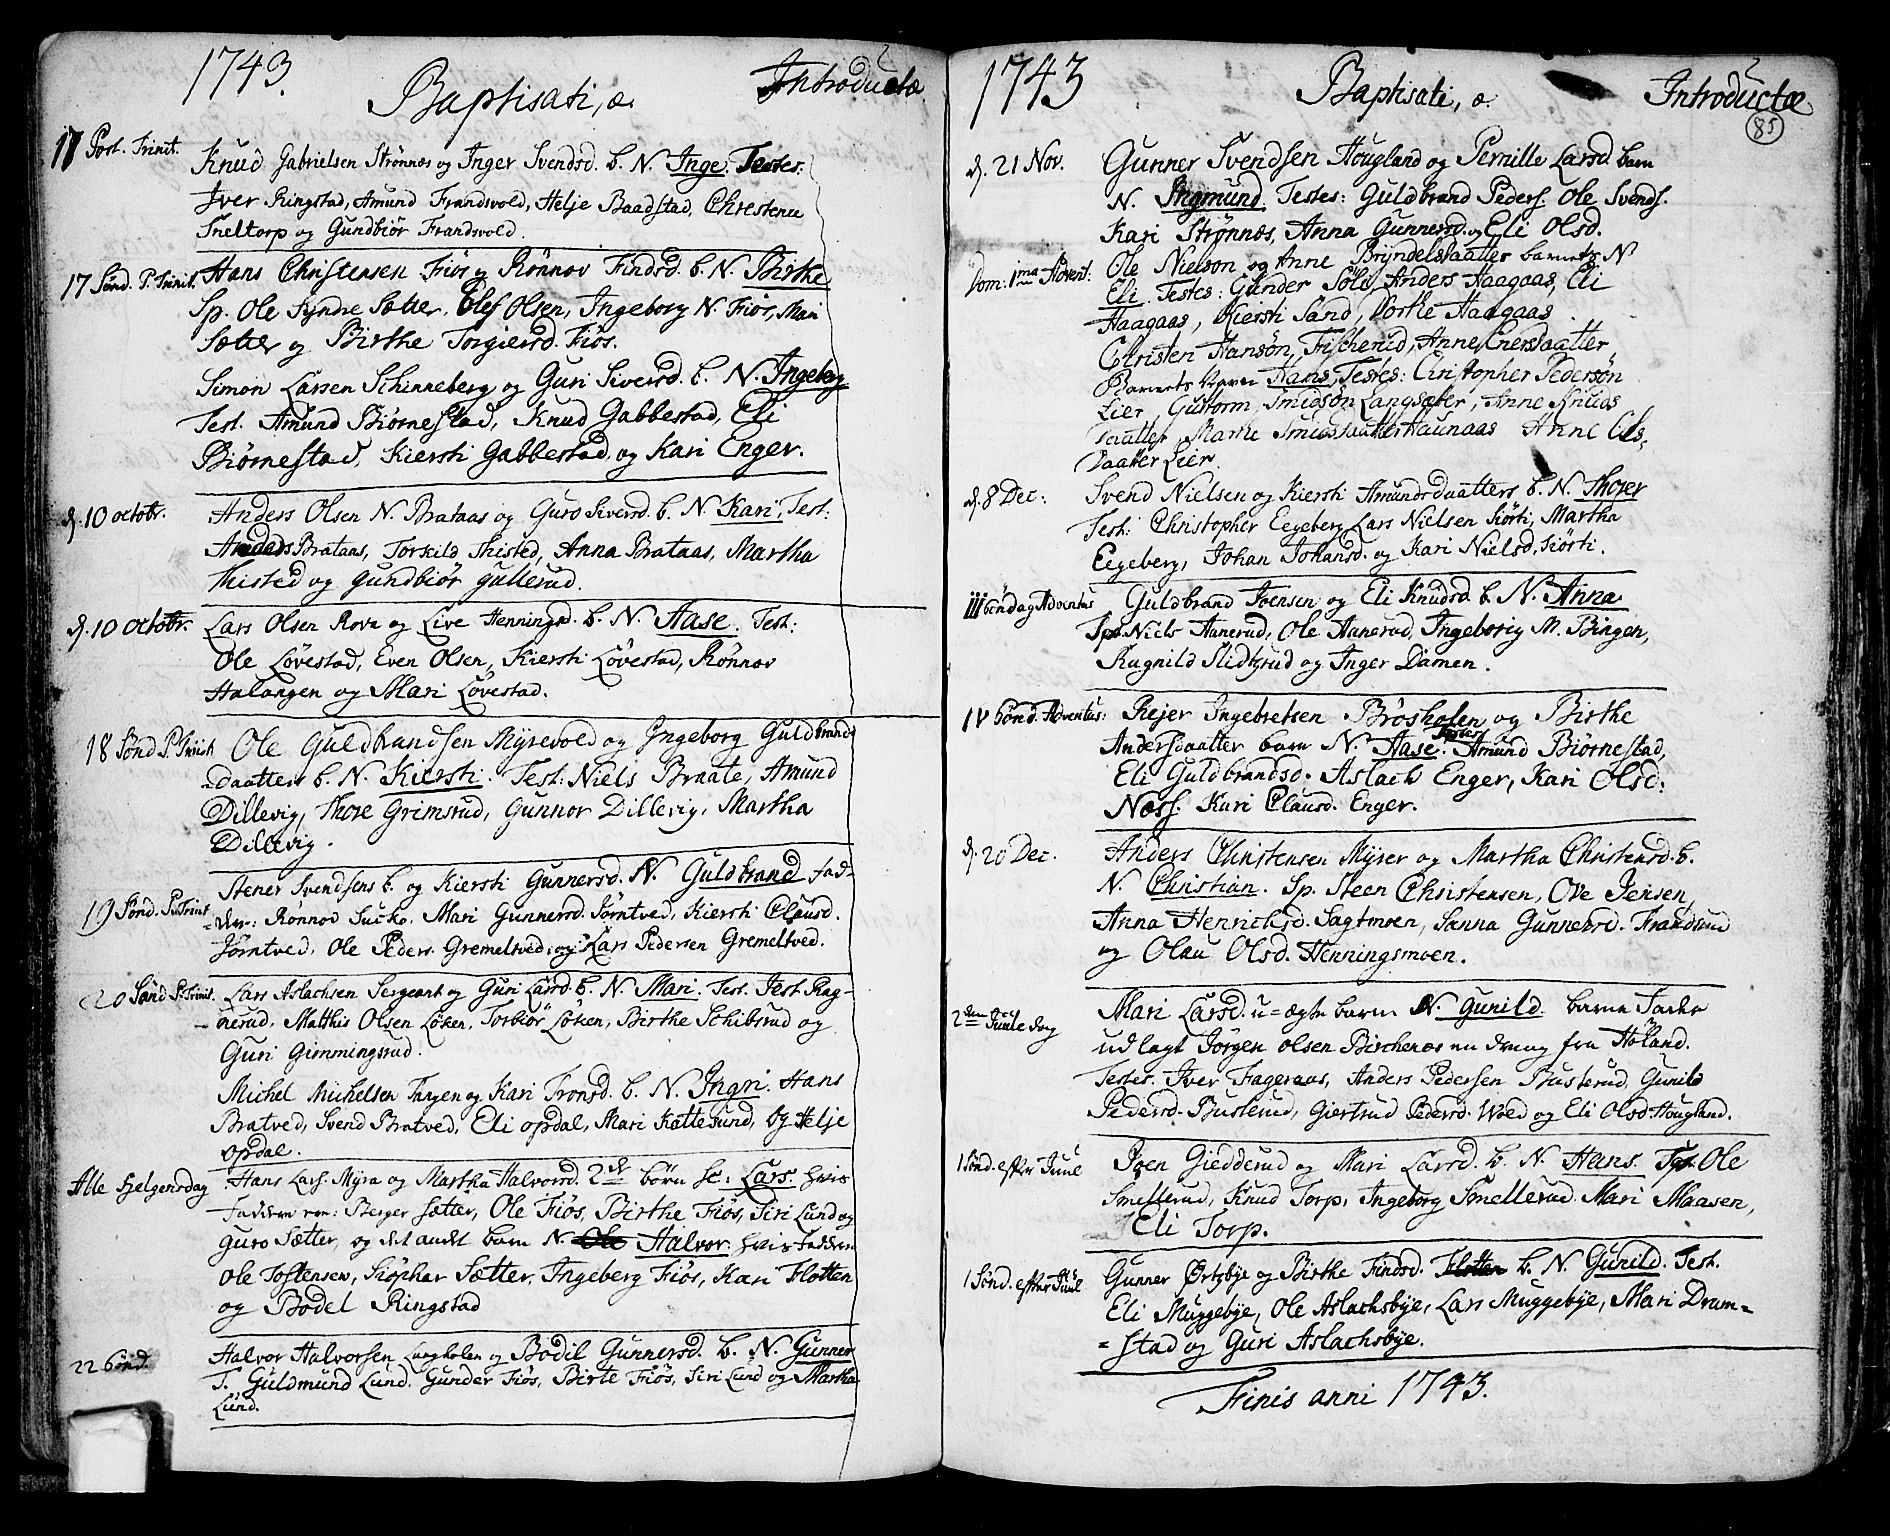 1743.
Baptisati, æ.
Introductæ.
17 Post. Trinit.
Knud Gabrielsen Strønnæs og Inger Svendsd. b. N. Inge. Testes:
Iver Ringstad, Amund Frandsvold, Helje Baadstad, Christence
Sneltorp og Gundbiør Frandsvold.
17 Sønd. P. Trinit.
Hans Christensen Fiøs og Rønnov Findsd. b. N. Birthe
Sp. Ole Syndre Sætter, Olef Olsen, Ingeborg N. Fiøs, Mari
Sætter og Birthe Torgiersd. Fiøs.
Simon Larsen Schinneberg og Guri Siversd. b. N. Ingeborg
Test. Amund Biørnestad, Knud Gabbestad, Eli
Biørnestad, Kiersti Gabbestad og Kari Enger.
d. 10 octobr.
Anders Olsen N. Brataas og Guro Siversd. b. N. Kari, Test:
Anders Brataas, Torkild Thisted, Anna Brataas, Martha
Thisted og Gundbiør Gullerud.
d. 10 octobr.
Lars Olsen Rova og Live Henningsd. b. N. Aase. Test:
Ole Løvestad, Even Olsen, Kiersti Løvestad, Rønnov
Halangen og Mari Løvestad.
18 Sønd. P. Trinit
Ole Guldbrandsen Myrevold og Ingeborg Guldbrands
-daatters b. N. Kiersti. Test: Niels Braate, Amund
Dillevig, Thore Grimsrud, Gunnor Dillevig, Martha
Dillevig.
19 Sønd. P. Trinit
Stener Svendsens b. og Kiersti Gunnersd. N. Guldbrand fad-
=dere: Rønnov Sucko, Mari Gunnersd. Jørntved, Kiersti Clausd.
Jørntved, Ole Peders. Gremeltved, og Lars Pedersen Gremeltved.
20 Sønd P. Trinit.
Lars Aslachsen Sergeant og Guri Larsd. b. N. Mari. Test. Jest Rag-
-nerud, Matthis Olsen Løken, Torbiør Løken, Birthe Schibsrud og
Guri Gimmingsrud.
Michel Michelsen Tangen og Kari Tronsd. b. N. Ingri. Hans
Bratved, Svend Bratved, Eli opdal, Mari Kattesund, og Helje
opdal.
Alle Helgensdag
Hans Lars. Myra og Martha Halvorsd. 2de børn sc: Lars. hvis
Faddere ere: Berger Sætter, Ole Fiøs, Birthe Fiøs, Siri Lund og
Guro Sætter, og det andet barn N. Halvor. hvis Faddere
Ole Tostensen, Siøphar Sætter, Ingeberg Fiøs, Kari Flotten
og Bodel Ringstad
22 Sønd.
Halvor Halvorsen Langholen og Bodil Gunnersd. b. N. Gunner
T. Guldmund Lund. Gunder Fiøs, Birte Fiøs, Siri Lund og Martha
Lund.
1743
Baptisati, æ.
Introductæ.
85
d. 21 Nov.
Gunner Svendsen Hougland og Pernille Larsd. barn
N. Ingmund. Testes: Guldbrand Peders. Ole Svends.
Kari Strønnæs, Anna Gunnersd. og Eli Olsd.
Dom: 1ma Advent.
Ole Nielsøn og Anne Bryndelsdaatter barnets N
Eli. Testes: Gunder Søli, Anders Haagaas, Eli
Haagaas, Kiersti Sand, Dorthe Haagaas.
Christen Hansøn, Fischerud, Anne Enersdaatter
Barnets Navn Hans, Testes: Christopher Pedersøn
Lier, Guttorm Smidsøn Langsæter, Anne Knuds
Daatter, Marthe Smidsdaatter Haunaas Anne Ols
Daatter Lier.
d. 8 Dec:
Svend Nielsen og Kiersti Amundsdaatters b. N. Thorer
Test: Christopher Eegeberg Lars Nielsen Siørti, Martha
Eegeberg, Johan Johansd. og Kari Nielsd. Siørti.
iii Søndag Adventus
Guldbrand Svensen og Eli Knudsd. b. N. Anna
Niels Aanerud, Ole Aanerud, Ingeborig M. Bingen,
Ragnild Slidtzrud og Inger Damen.
IV Sønd. Adventus:
Rejer Ingebretsen Brøsholen og Birthe
Andersdaatter barn N. Aase. Testes Amund Biørnestad,
Eli Guldbrandsd. Aslach Enger, Kari Olsd:
Næss. Kari Clausd. Enger.
d. 20 Dec.
Anders Christensen Myrer og Martha Christensd. b.
N. Christian. Sp. Steen Christensen, Ove Jensen,
Anna Henrichsd. Sagtmoen, Sanna Gunnersd. Frandsrud
og Olau Olsd. Henningsmoen.
2den Juule dag
Mari Larsd. u=ægte barn N. Gunild. barne Fader
udlagt Jørgen Olsen Birchenæs en dreng fra Høland.
Testes. Iver Fageraas, Anders Pedersen Busterud, Gunild
Pedersd. Busterud, Giertrud Pedersd. Woed og Eli Olsd. Hougland.
1 Sønd. efter Juul
Joen Giedderud og Mari Larsd. b. N. Hans. Test. Ole
Smellerud, Knud Torp, Ingeborg Smellerud. Mari Maasen,
Eli Torp.
1 Sønd. efter Juul
Gunner Ørtzbye og Birthe Findsd. Flotten b. N. Gunild. Test.
Eli Muggebye, Ole Aslachsbye, Lars Muggebye, Mari Dram=
=stad og Guri Aslachsbye.
Finis anni 1743.